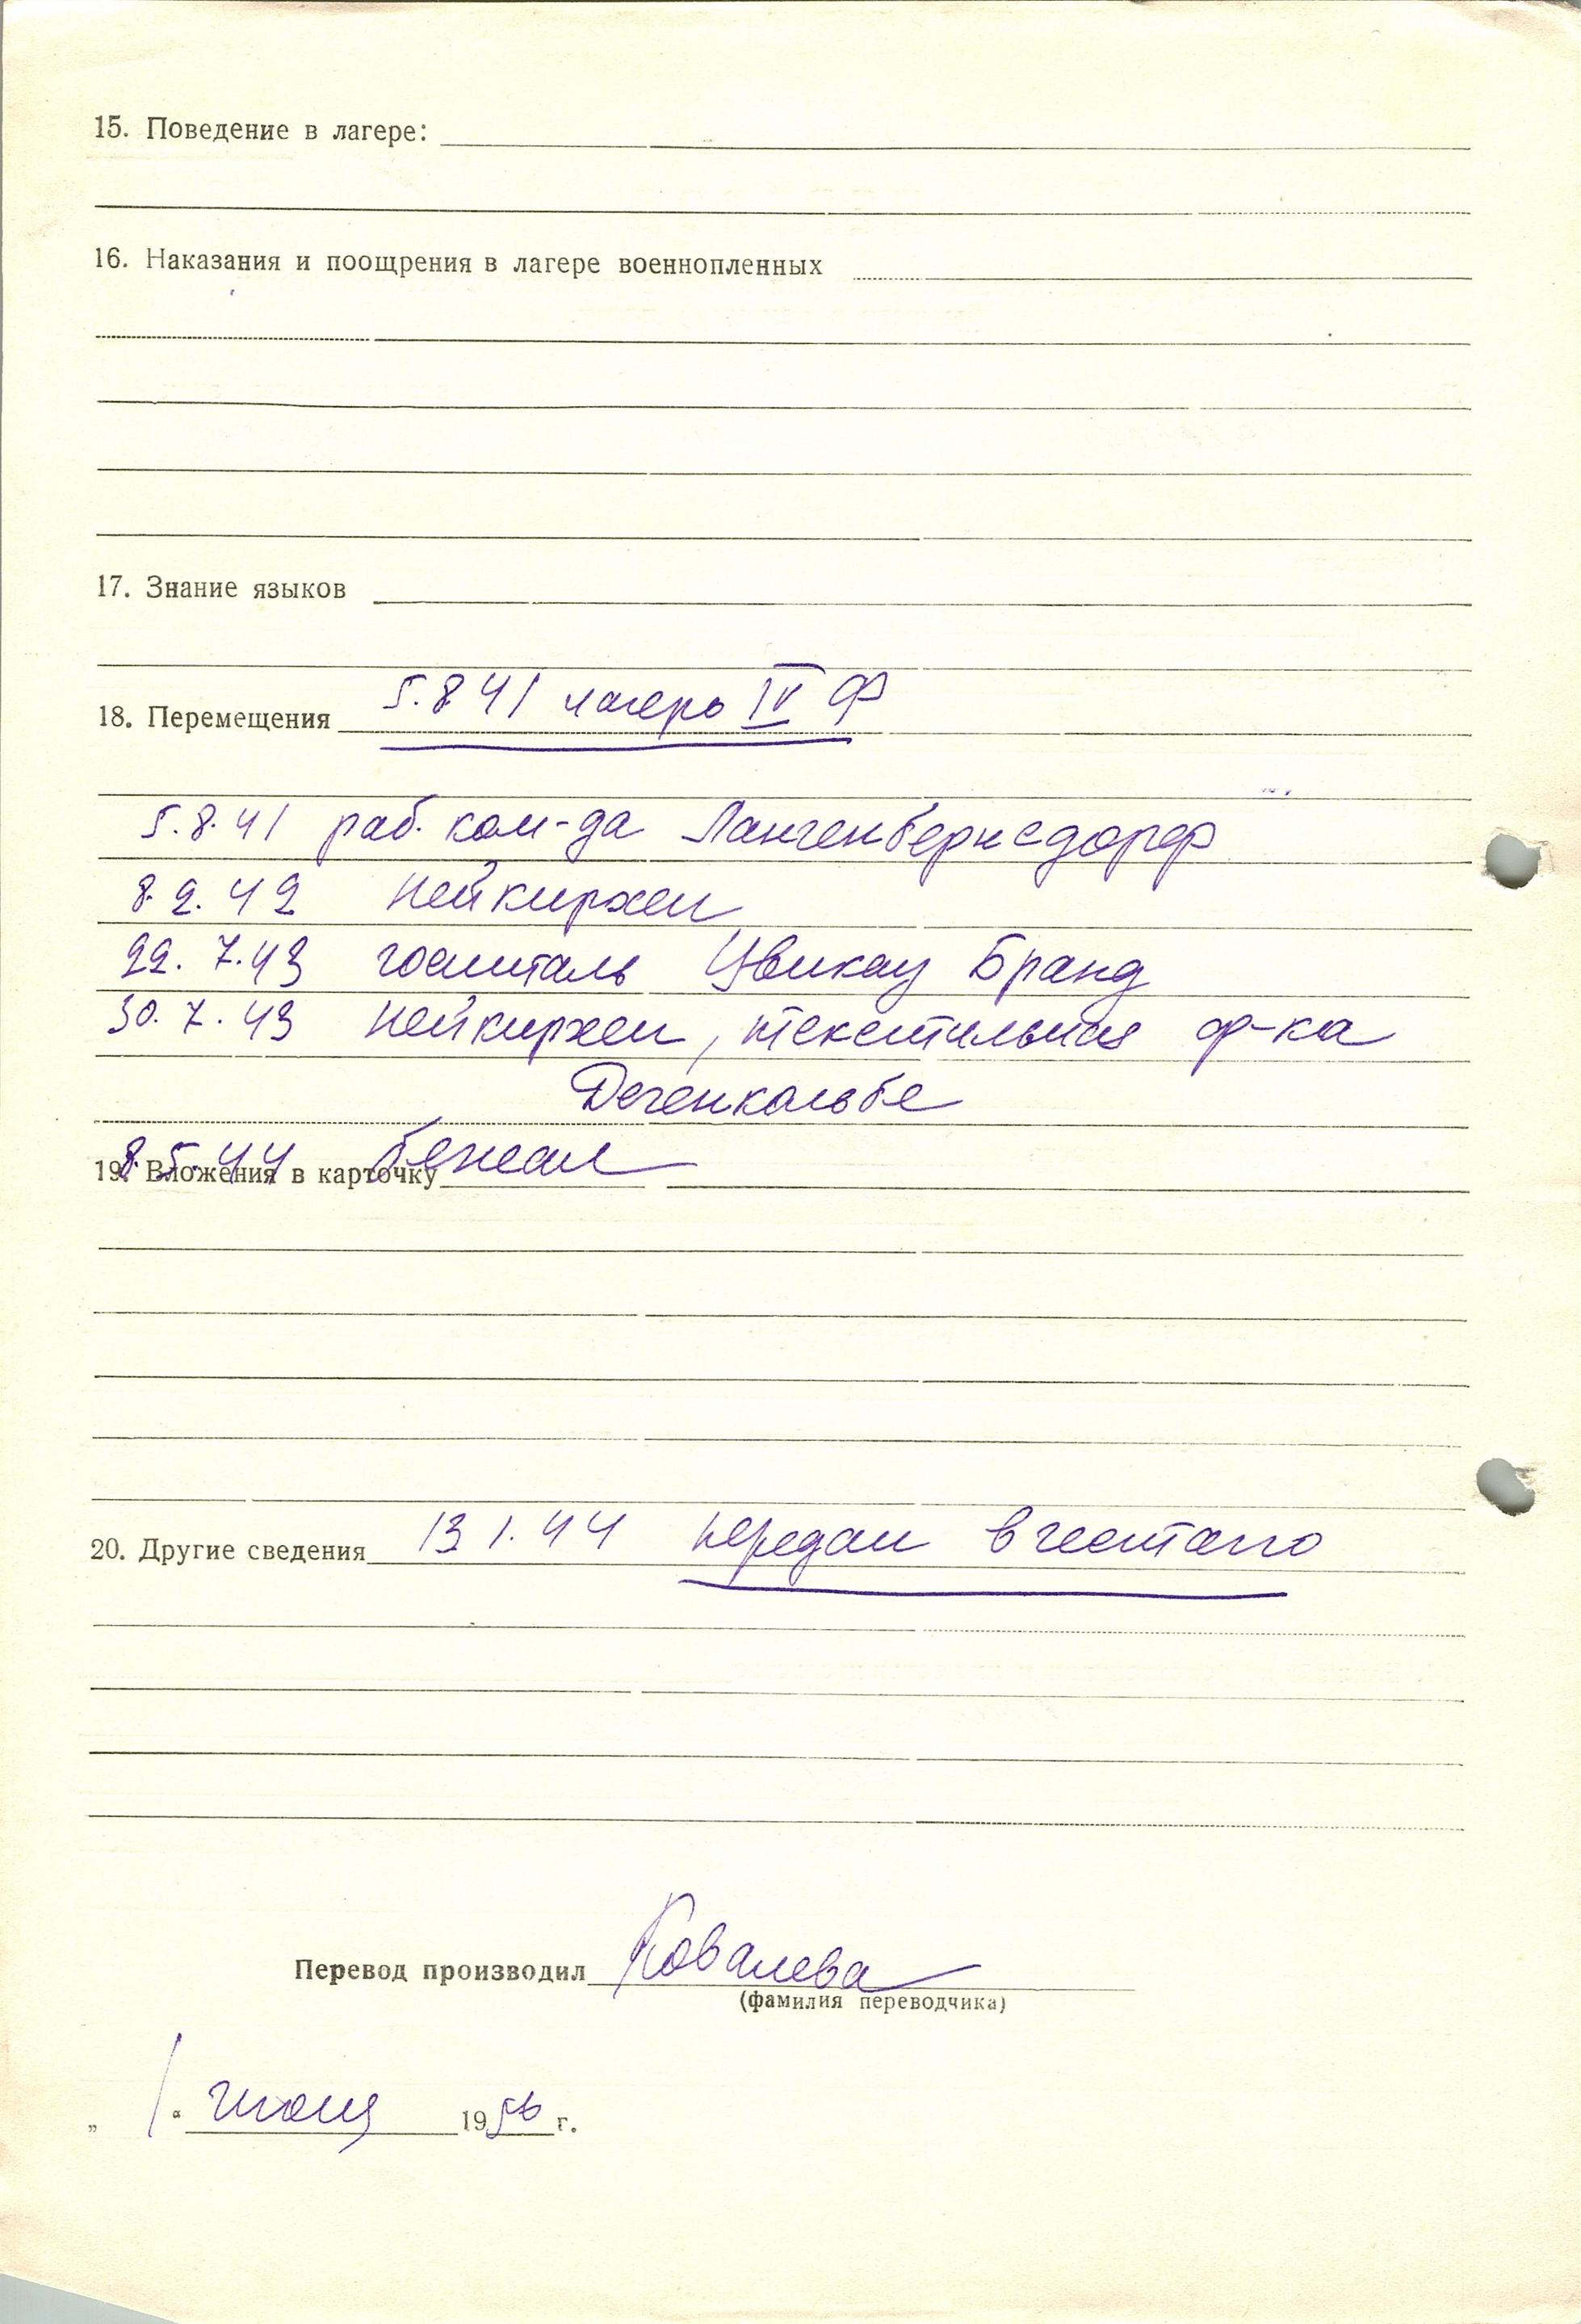 15. Поведение в лагере:
16. Наказания и поощрения в лагере военнопленных
17. Знание языков
18. Перемещения 5.8.41 лагерь IV Ф
5.8.41 раб. ком-да Лангенбернсдорф
8.2.42 Нейкирхен
22.7.43 госпиталь Цвикау Бранд
30.7.43 Нейкирхен, текстильная ф-ка
Дегенкольбе
8.5.44 бежал
19. Вложения в карточку
20. Другие сведения 13 1.44 передан в гестапо
Перевод производил Ковалева
(фамилия переводчика)
„ 1 “ июня 1956 г.